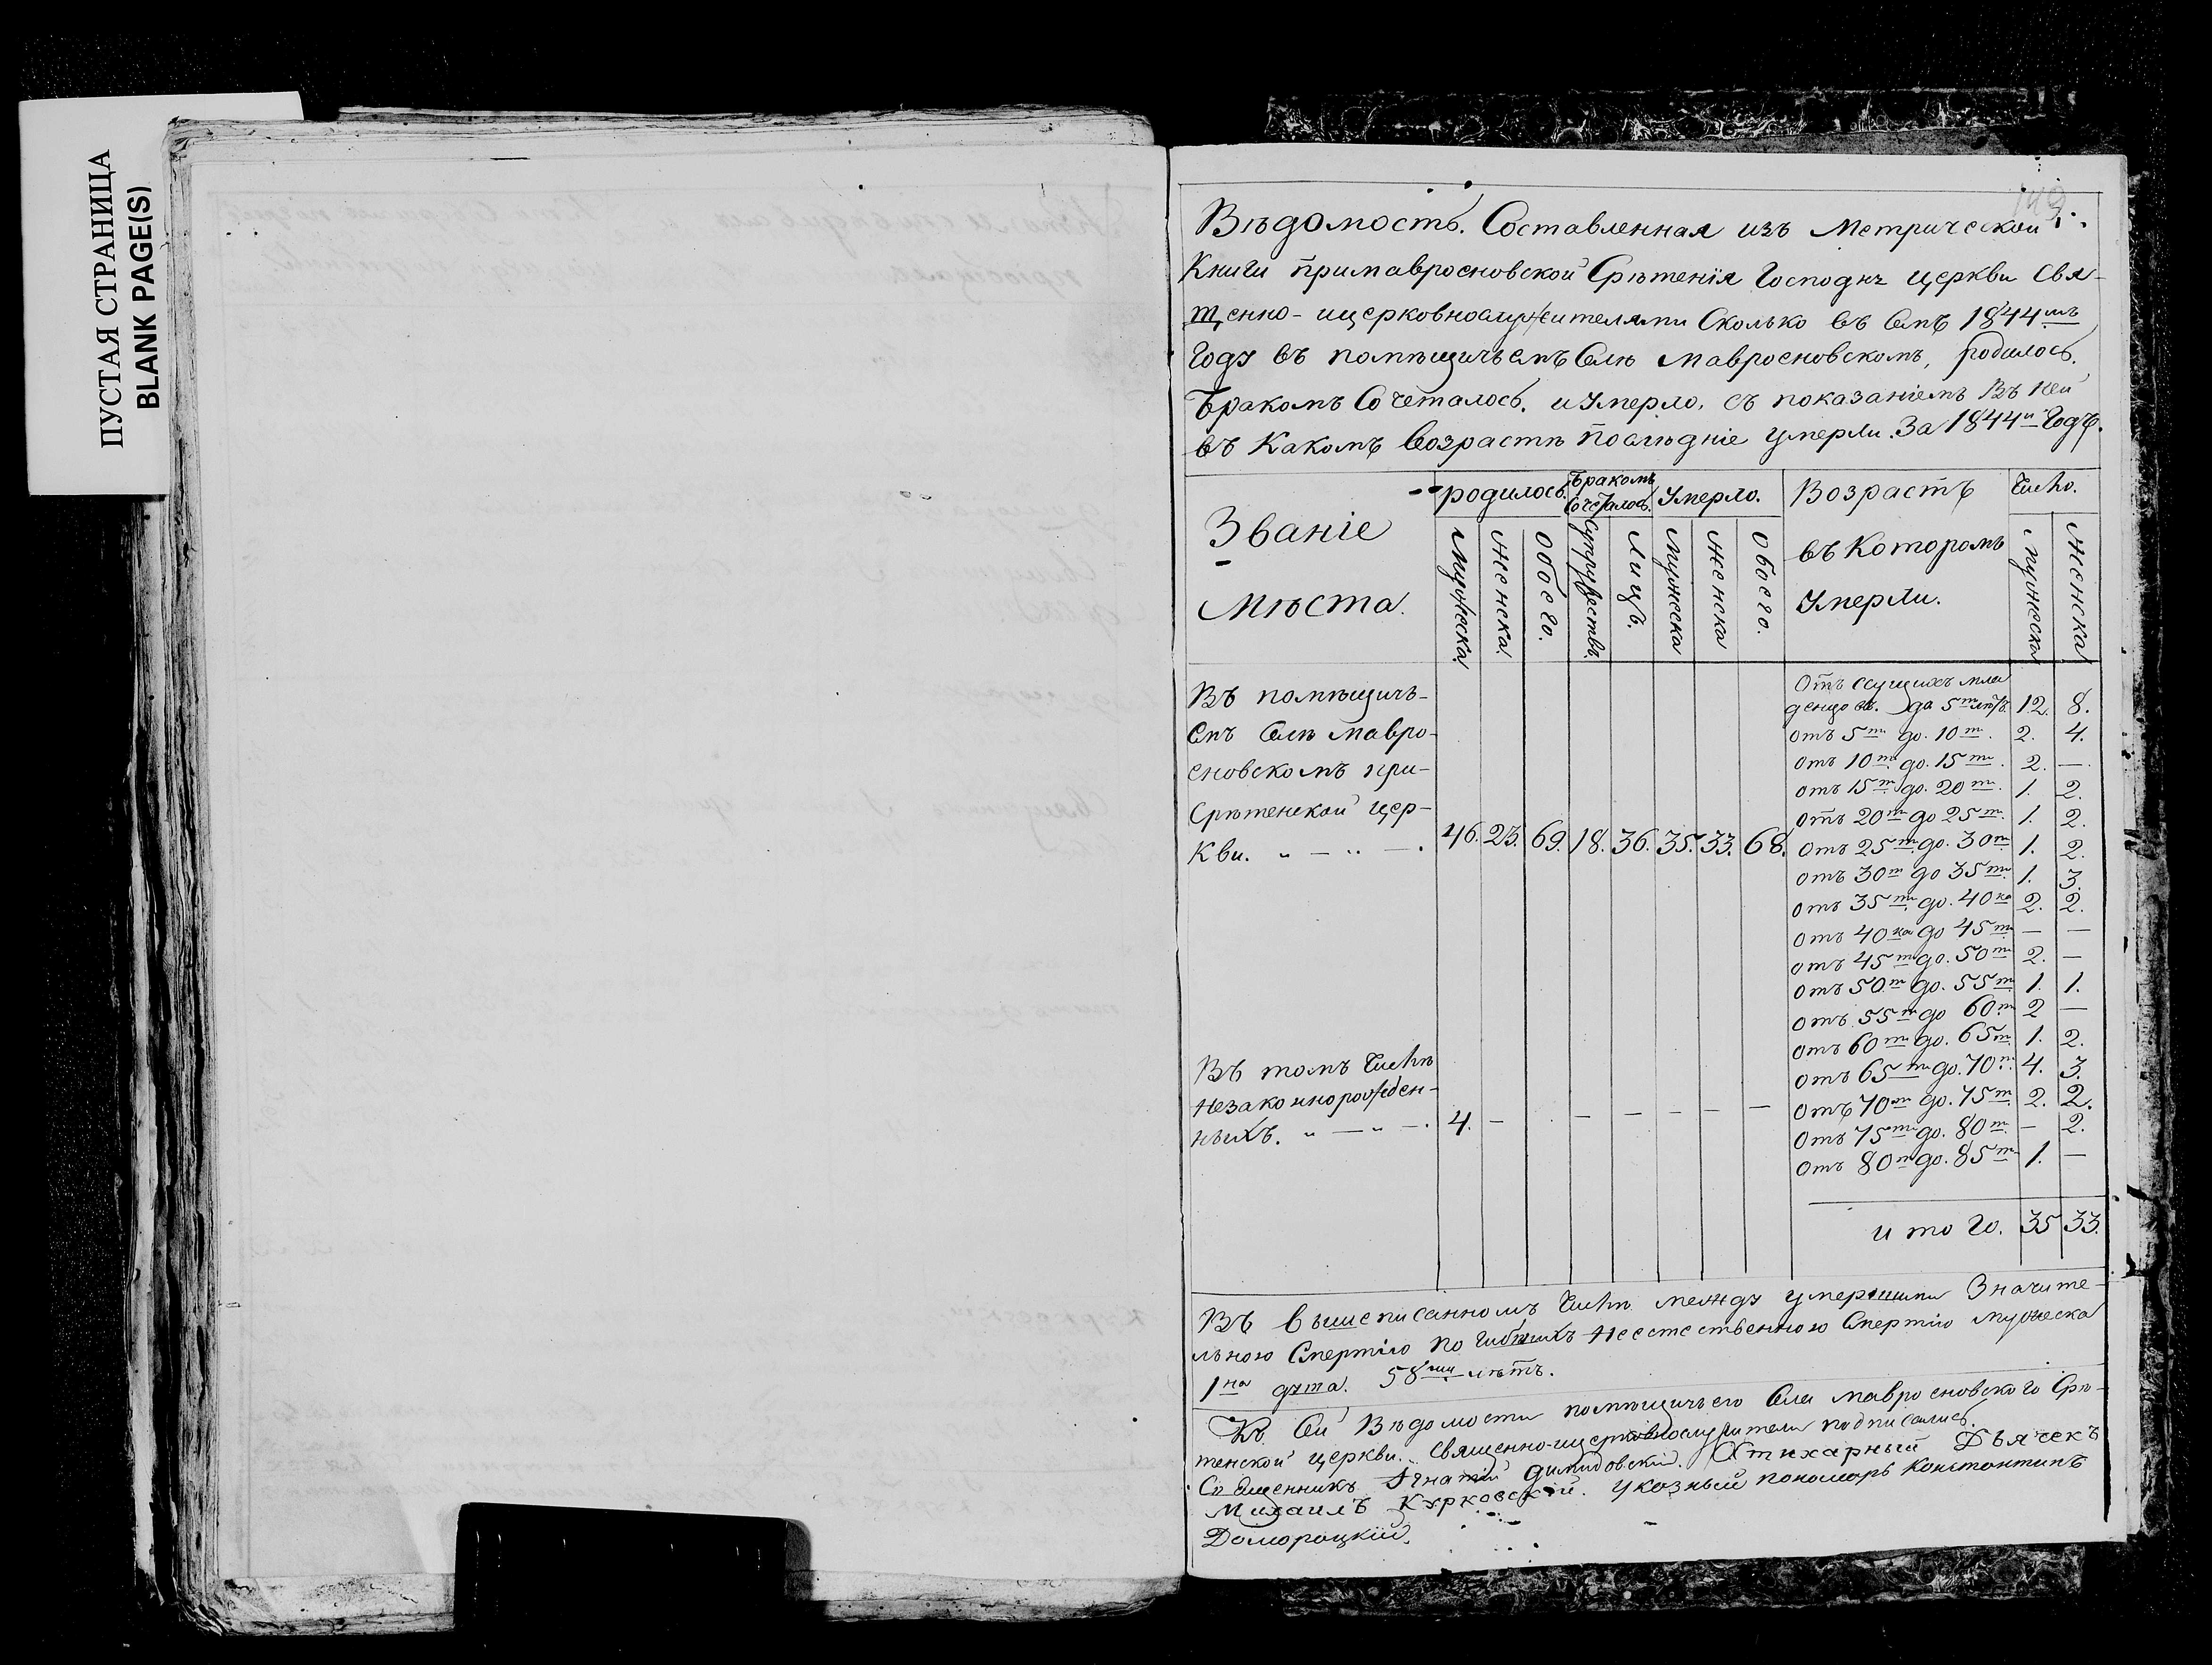 ПУСТАЯ СТРАНИЦА
BLANK PAGE(S)
Вѣдомость. Составленная изъ Метрической
Книги примавросновской Срѣтенія Господнѣ церкви Свя-
щенно- ицерковнослужителями Сколько въ Семъ 1844мъ
Году въ помѣщичьемъ Селѣ Мавросновскомъ, родилось.
Бракомъ Сочеталось. и Умерло. съ показаніемъ въ ней
въ Какомъ Возрастѣ Послѣдніе умерли. За 1844й Годъ.
Званіе Мѣста.
родилось.
Мужеска
Женска.
Обоего.
Бракомъ Сочеталось.
Супружествъ.
Лицъ.
Умерло.
Мужеска
Женска
Обоего.
Возрастъ въ Которомъ Умерли.
Число.
Мужеска
Женска
Въ помѣщичь-
Емъ Селѣ Мавро-
сновскомъ при-
Срѣтенской Цер-
Кви. 46. 23. 69. 18. 36. 35. 33. 68.
Въ томъ Числѣ
Незаконнорожден-
ныхъ. 4. — — — — — —
Отъ Ссущихъ мла
денцовъ. до 5т лѣтъ. 12. 8.
отъ 5т до. 10т. 2. 4.
отъ 10т до. 15т. 2. —.
отъ 15т до. 20т. 1. 2.
отъ 20т до 25т. 1. 2.
отъ 25т до. 30т 1. 2.
отъ 30т до 35т. 1. 3.
отъ 35т до. 40ка 2. 2.
отъ 40ка до 45т — —
отъ 45т до. 50т 2. —
отъ 50т до. 55т 1. 1.
отъ 55т до 60т 2 —
отъ 60т до. 65т 1. 2.
отъ 65т до. 70т. 4. 3.
отъ 70т до. 75т. 2. 2.
отъ 75т до. 80т — 2.
отъ 80т до. 85т 1. —
итого. 35 33.
Въ вышеписанномъ Числѣ между умершими Значите-
льною Смертію погибшихъ неестественною Смертію мужеска
1на душа. 58ми лѣтъ.
Къ Сей Вѣдомости помѣщичьего Села Мавросновского Срѣ-
тенской церкви. Священно-ицерковнослужители подписались.
Священникъ Игнатій Димидовскій. Стихарный Дьячекъ
Михаилъ Курковскій. Указный пономарь Константинъ
Доморацкій.